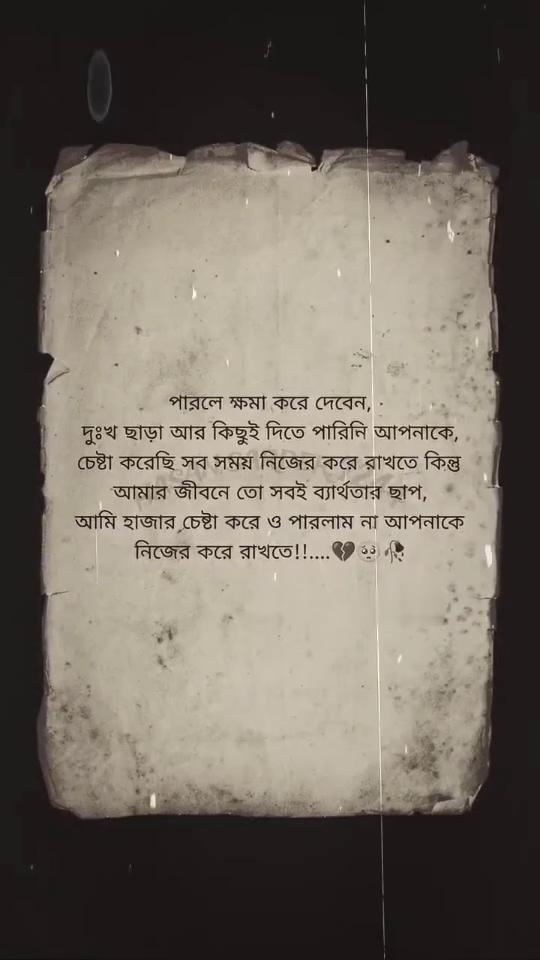 পারলে ক্ষমা করে দেবেন,
দুঃখ ছাড়া আর কিছুই দিতে পারিনি আপনাকে,
চেষ্টা করেছি সব সময় নিজের করে রাখতে কিন্তু
আমার জীবনে তো সবই ব্যার্থতার ছাপ,
আমি হাজার চেষ্টা করে ও পারলাম না আপনাকে
নিজের করে রাখতে!!....💔🥺🥀